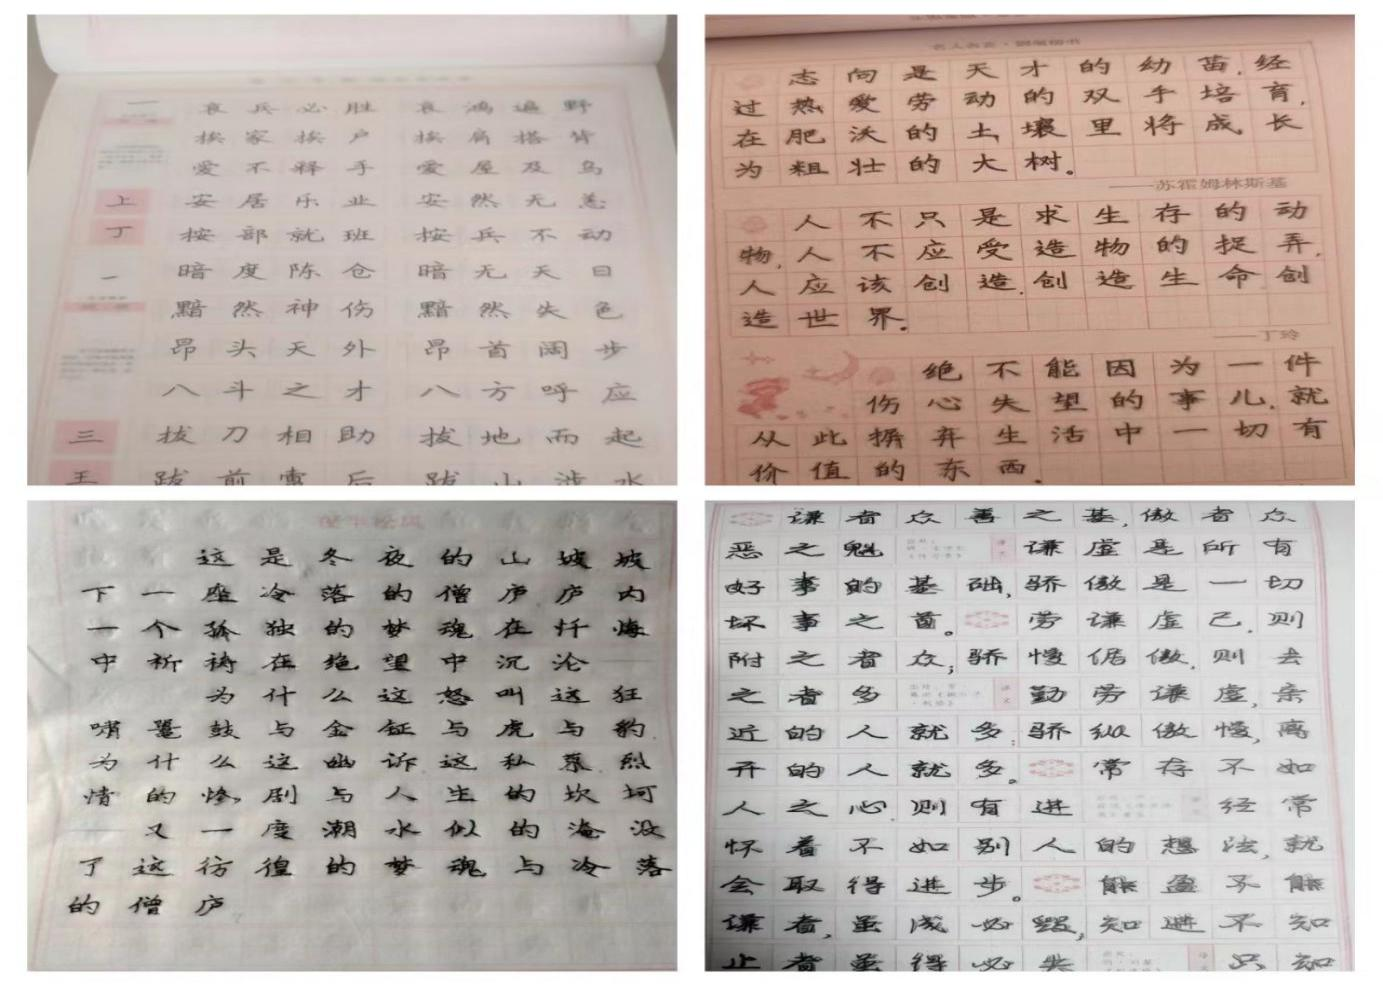 一 哀兵必胜 哀鸿遍野
挨家挨户 挨肩搭背
爱不释手 爱屋及乌
上 安居乐业 安然无恙
丁 按部就班 按兵不动
一 暗度陈仓 暗无天日
黯然神伤 黯然失色
昂头天外 昂首阔步
八斗之才 八方呼应
三 拔刀相助 拔地而起
王 跋前疐后 跋山涉水
志向是天才的幼苗,经
过热爱劳动的双手培育,
在肥沃的土壤里将成长
为粗壮的大树。
——苏霍姆林斯基
人不只是求生存的动
物,人不应受造物的捉弄,
人应该创造,创造生命,创
造世界。
——丁玲
绝不能因为一件
伤心失望的事儿,就
从此摒弃生活中一切有
价值的东西.
这是冬夜的山坡坡
下一座冷落的僧庐庐内
一个孤独的梦魂在忏悔
中祈祷在绝望中沉沦
为什么这怒叫这狂
啸鼍鼓与金钲与虎与豹
为什么这幽诉这私慕烈
情的惨剧与人生的坎坷
又一度潮水似的淹没
了这彷徨的梦魂与冷落
的僧庐
谦者众善之基,傲者众
恶之魁 谦虚是所有
好事的基础,骄傲是一切
坏事之首。劳谦虚己,则
附之者众;骄慢倨傲,则去
之者多 勤劳谦虚,亲
近的人就多;骄纵傲慢,离
开的人就多。常存不如
人之心,则有进 经常
怀着不如别人的想法,就
会取得进步。能盈不能
谦者,虽成必毁;知进不知
止者虽得必失 只知